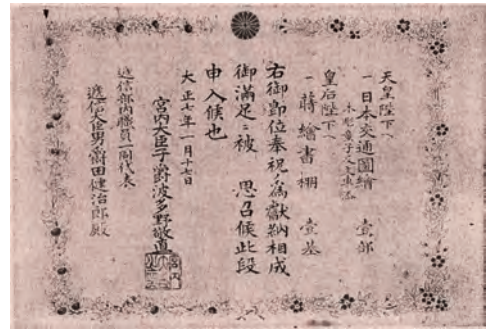 天皇陛下へ
一 日本交通圖繪 壹部
皇后陛下へ
一 蒔繪書棚 壹基
右御即位奉祝ノ為獻納相成
御滿足ニ被 思召候此段
申入候也
大正七年一月十七日
宮内大臣子爵波多野敬直
遞信部内職員一同代表
遞信大臣男爵田健治郎殿